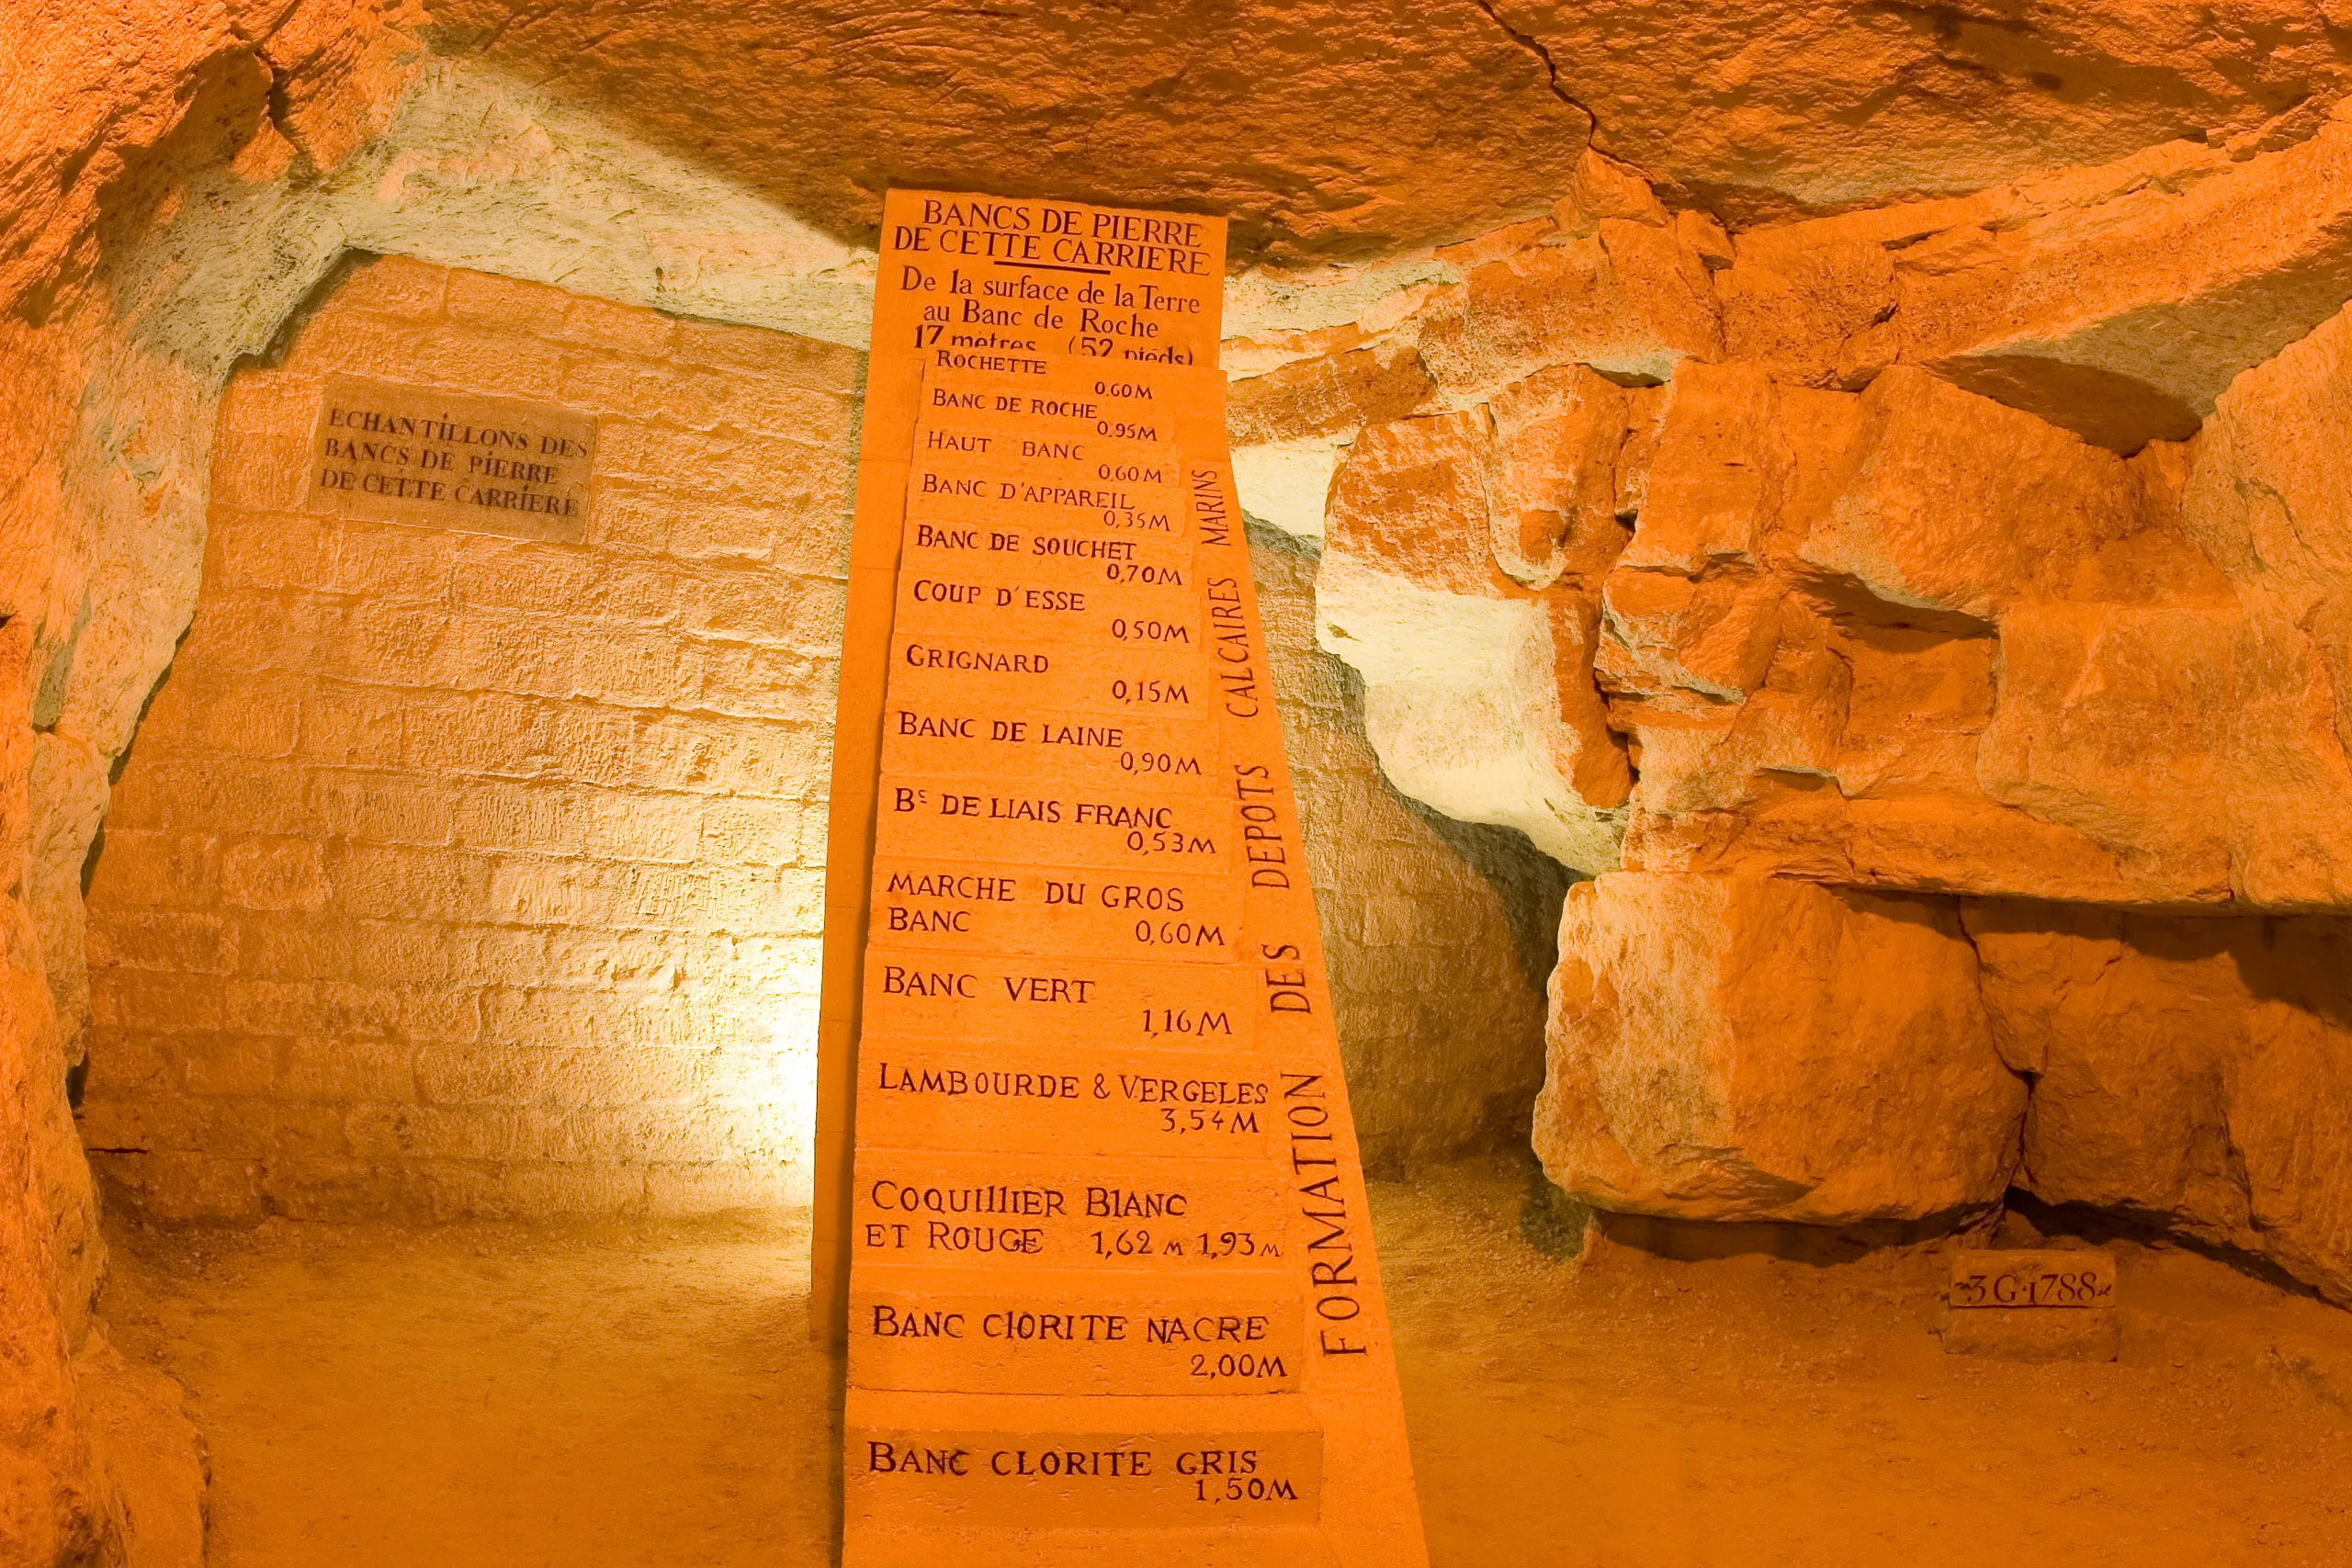 ECHANTILLONS DES
BANCS DE PIERRE
DE CETTE CARRIERE
BANCS DE PIERRE
DE CETTE CARRIERE
De la surface de la Terre
au Banc de Roche
17 mètres (52 piéds)
ROCHETTE
0.60M
BANC DE ROCHE
0.95M
HAUT BANC
0.60M
BANC D'APPAREIL
0,35M
BANC DE SOUCHET
0,70M
COUP D'ESSE
0,50M
GRIGNARD
0,15M
BANC DE LAINE
0,90M
Bc DE LIAIS FRANC
0,53M
MARCHE DU GROS
BANC 0,60M
BANC VERT
1,16M
LAMBOURDE & VERGELES
3,54M
COQUILLIER BLANC
ET ROUGE 1,62 M 1,93 M
BANC CLORITE NACRE
2,00M
BANC CLORITE GRIS
1,50M
FORMATION DES DEPOTS CALCAIRES MARINS
3 G·1788